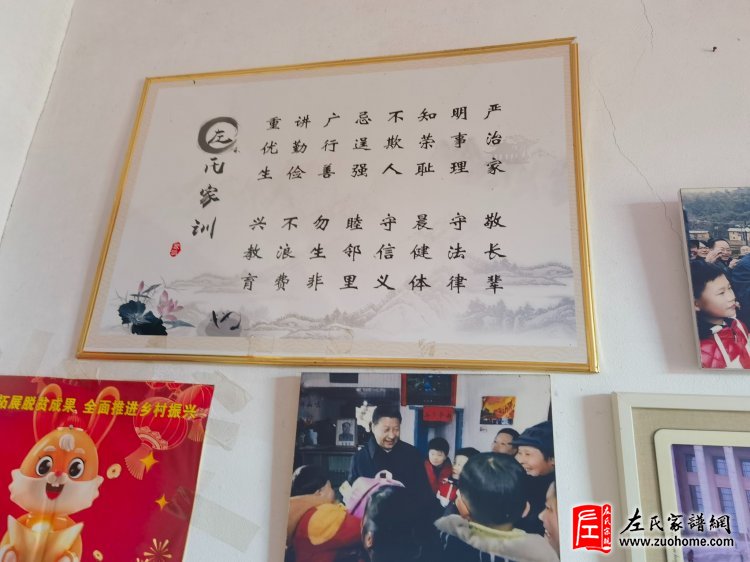 左氏家训
严治家
明事理
知荣耻
不欺人
忌逞强
广行善
讲勤俭
重优生
敬长辈
守法律
晨健体
守信义
睦邻里
勿生非
不浪费
兴教育
拓展脱贫成果 全面推进乡村振兴
左氏家譜網
www.zuohome.com